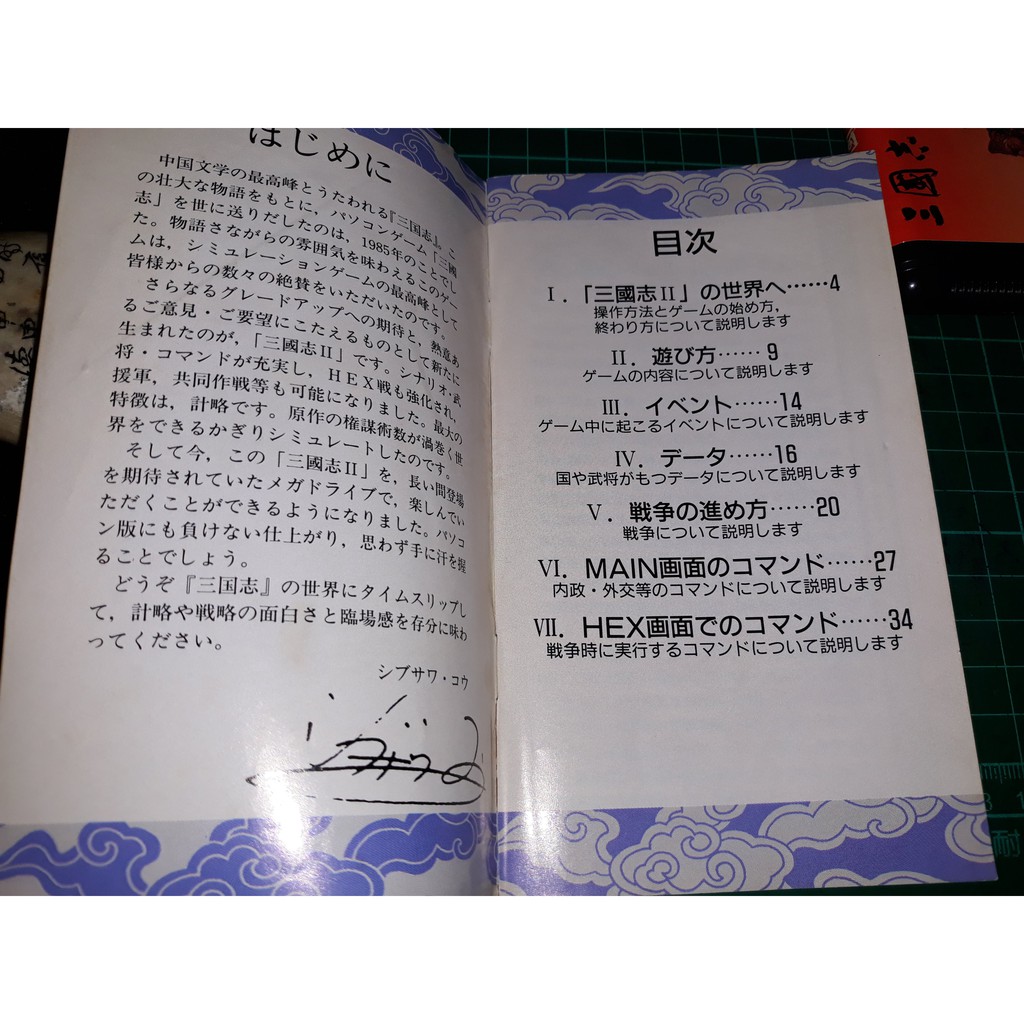 はじめに
中国文学の最高峰とうたわれる『三国志』。こ
の壮大な物語をもとに，パソコンゲーム「三國
志」を世に送りだしたのは，1985年のことでし
た。物語さながらの雰囲気を味わえるこのゲー
ムは，シミュレーションゲームの最高峰として
皆様からの数々の絶賛をいただいたのです。
さらなるグレードアップへの期待と，熱意あ
るご意見・ご要望にこたえるものとして新たに
生まれたのが，「三國志II」です。シナリオ・武
将・コマンドが充実し，HEX戦も強化され，
援軍，共同作戦等も可能になりました。最大の
特徴は，計略です。原作の権謀術数が渦巻く世
界をできるかぎりシミュレートしたのです。
そして今，この「三國志II」を，長い間登場
を期待されていたメガドライブで，楽しんでい
ただくことができるようになりました。パソコ
ン版にも負けない仕上がり，思わず手に汗を握
ることでしょう。
どうぞ『三国志』の世界にタイムスリップし
て，計略や戦略の面白さと臨場感を存分に味わ
ってください。
シブサワ・コウ
目次
I．「三國志II」の世界へ……4
操作方法とゲームの始め方，
終わり方について説明します
II．遊び方……9
ゲームの内容について説明します
III．イベント……14
ゲーム中に起こるイベントについて説明します
IV．データ……16
国や武将がもつデータについて説明します
V．戦争の進め方……20
戦争について説明します
VI．MAIN画面のコマンド……27
内政・外交等のコマンドについて説明します
VII．HEX画面でのコマンド……34
戦争時に実行するコマンドについて説明します
三國志